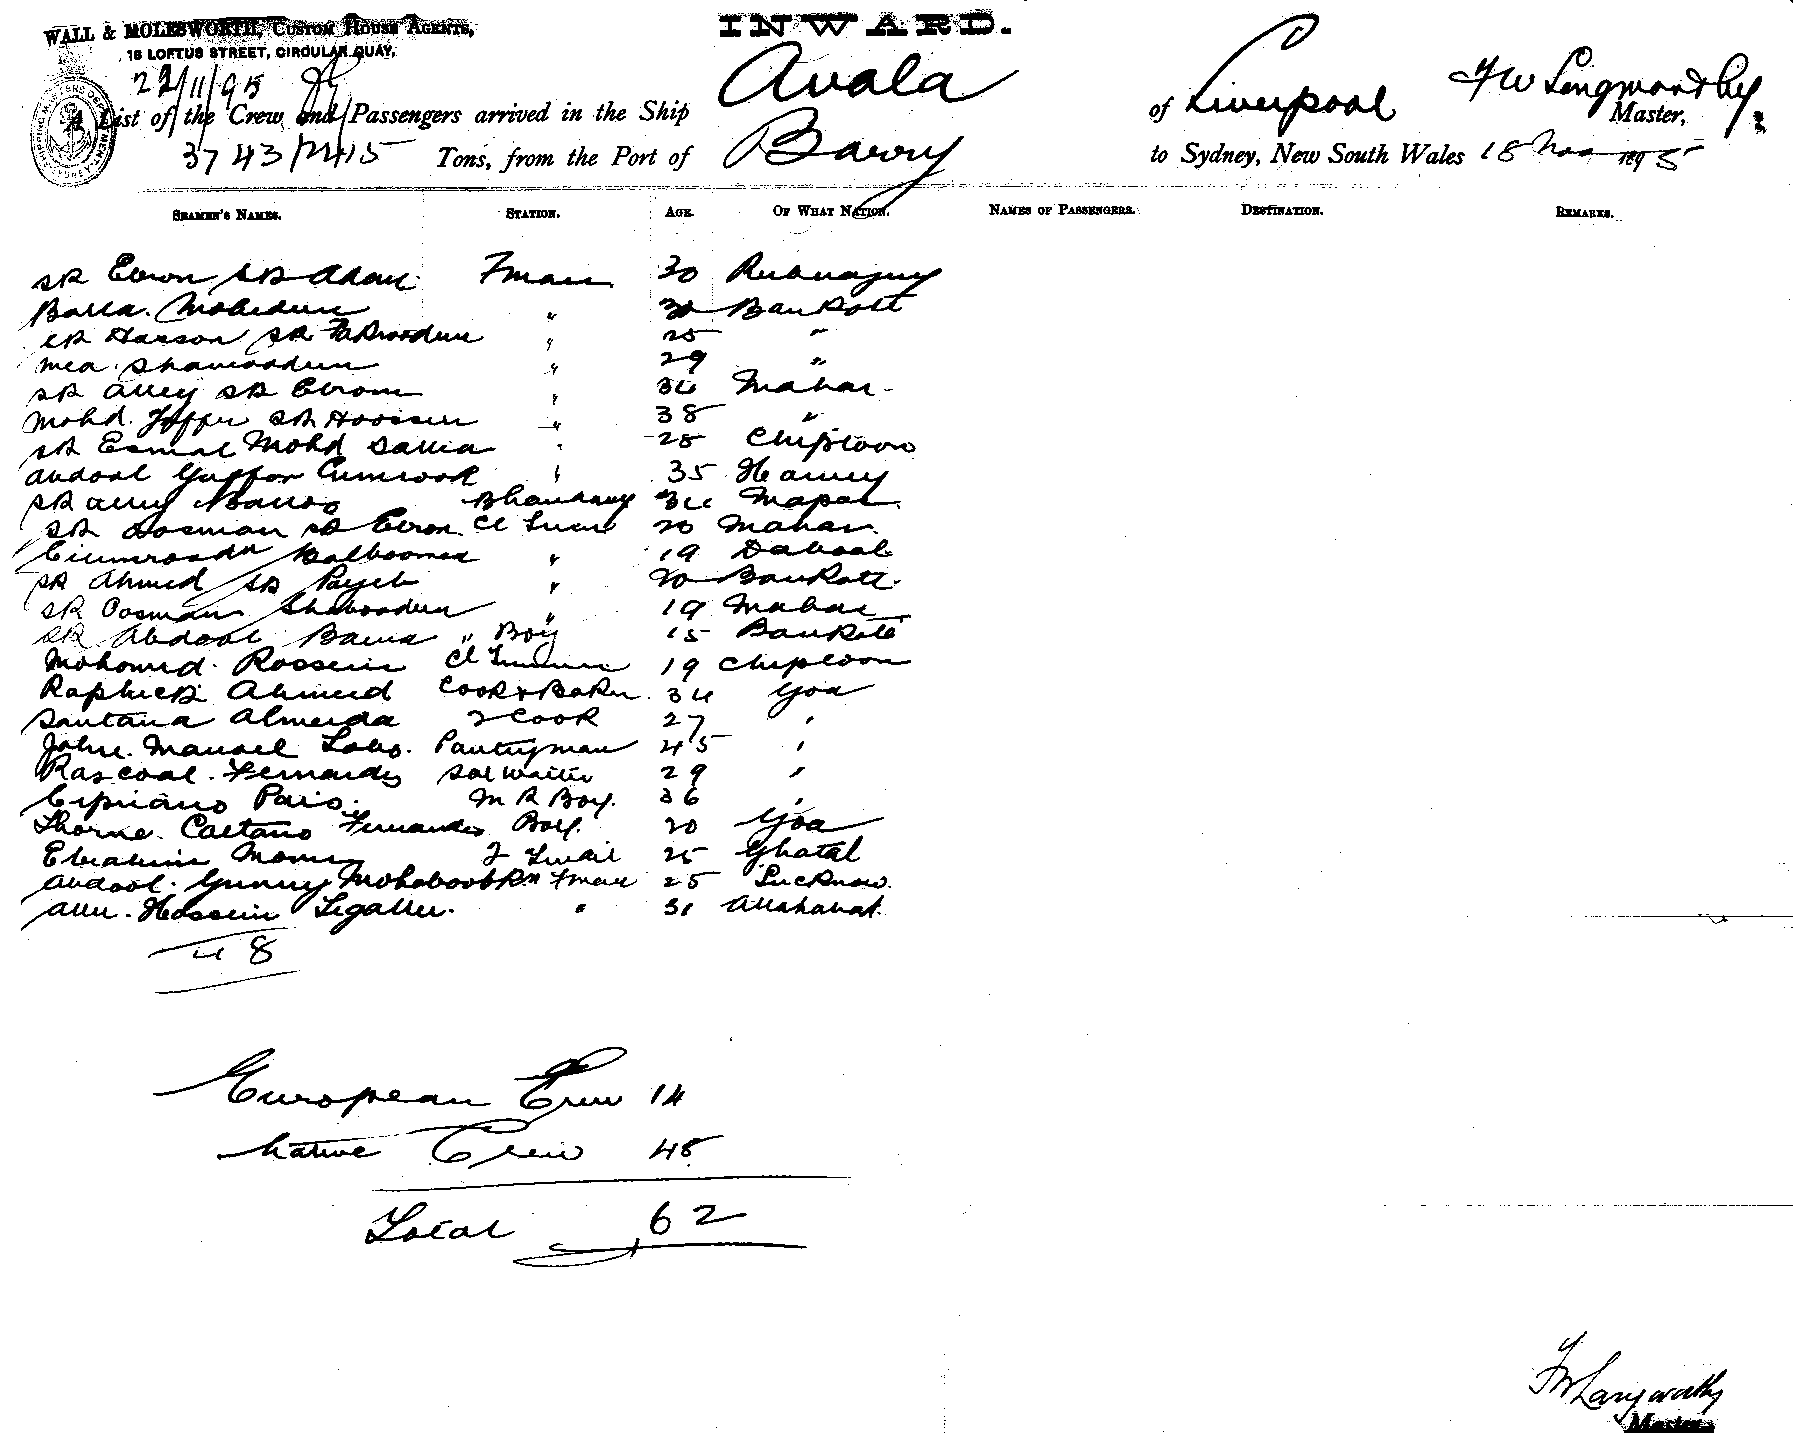 WALL & MOLESWORTH, CUSTOM HOUSE AGENTS,
16 LOFTUS STREET, CIRCULAR QUAY,
INWARD.
22/11/95
A List of the Crew and Passengers arrived in the Ship Avala of Liverpool Master,
3743/2415 Tons, from the Port of Barry to Sydney, New South Wales 18 Nov 1895
SEAMEN'S NAMES. STATION. AGE. OF WHAT NATION. NAMES OF PASSENGERS. DESTINATION. REMARKS.
SR Ebron SR Adam Fman 30
Balla Mohedun " 30 Bankott
SR Hasson SR " 25 "
Mea Shamoodun " 29 "
SR Alley SR Ebrom " 34 Mahar
Mohd. Joffer SR Hoossin " 38 "
SR Esmal Mohd " 28 Chiploon
Abdool Guffor " 35
SR Alley Bhandary 34
SR Oosman SR Ebron 20 Mahar
" 19 Dabool
SR Ahmed SR " 20 Bankott
SR Oosman Shaboodun " 19 Mahar
SR Abdool Bawa " Boy 15 Bankote
Mohomed Rossein 19 Chiploon
Raphick Ahmed Cook & Baker 34 Goa
Santana Almeida 2 Cook 27 "
John Manoel Lobo. Pantryman 45 "
Pascoal Fernandes Sal Waiter 29 "
Cipriano Pais. M R Boy. 36 "
Caetano Fernandes Boy. 20 Goa
Ebrahim 25 Ghatal
Abdool Gunny Fman 25 Lucknow.
Hossein " 31 Allahabad.
48
European Crew 14
Native Crew 48
Total 62
F W Langworthy
Master.